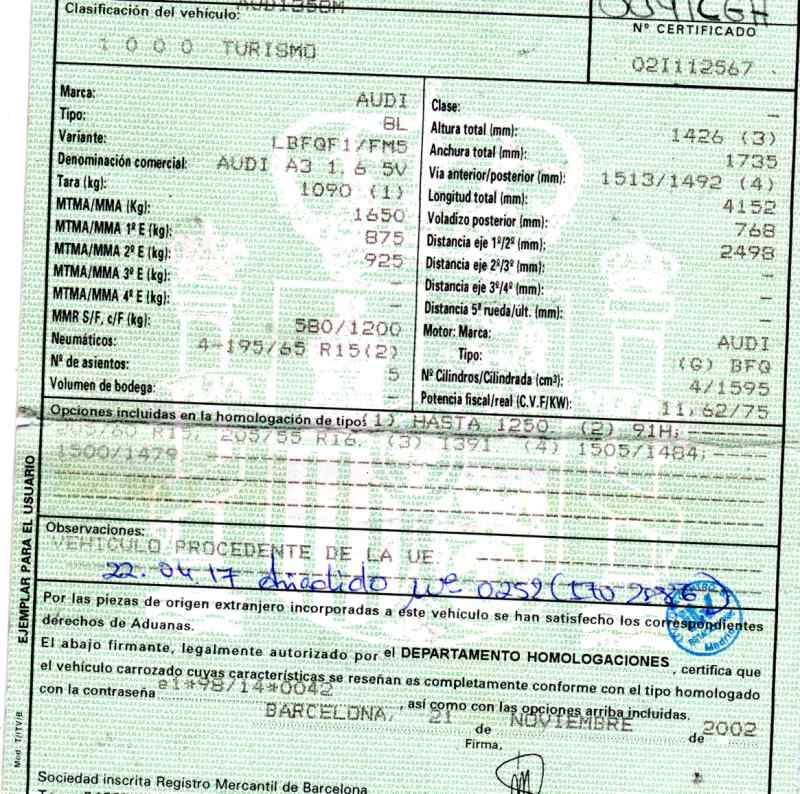 Clasificación del vehículo:
1000 TURISMO
Nº CERTIFICADO
02I112567
Marca: AUDI
Tipo: 8L
Variante: LBFQF1/FM5
Denominación comercial: AUDI A3 1.6 5V
Tara (kg): 1090 (1)
MTMA/MMA (Kg): 1650
MTMA/MMA 1º E (kg): 875
MTMA/MMA 2º E (kg): 925
MTMA/MMA 3º E (kg): -
MTMA/MMA 4º E (kg): -
MMR S/F, c/F (kg): 580/1200
Neumáticos: 4-195/65 R15(2)
Nº de asientos: 5
Volumen de bodega: -
Clase: -
Altura total (mm): 1426 (3)
Anchura total (mm): 1735
Via anterior/posterior (mm): 1513/1492 (4)
Longitud total (mm): 4152
Voladizo posterior (mm): 768
Distancia eje 1º/2º (mm): 2498
Distancia eje 2º/3º (mm): -
Distancia eje 3º/4º (mm): -
Distancia 5ª rueda/últ. (mm): -
Motor: Marca: AUDI
Tipo: (G) BFQ
Nº Cilindros/Cilindrada (cm³): 4/1595
Potencia fiscal/real (C.V.F/KW): 11,62/75
Opciones incluidas en la homologación de tipo: 1) HASTA 1250. (2) 91H;------
R15, 205/55 R16. (3) 1391. (4) 1505/1484;----
1500/1479.
Observaciones:
VEHICULO PROCEDENTE DE LA UE
22.04.17 Nº 0252 (
Por las piezas de origen extranjero incorporadas a este vehículo se han satisfecho los correspondientes
derechos de Aduanas.
El abajo firmante, legalmente autorizado por el DEPARTAMENTO HOMOLOGACIONES, certifica que
el vehículo carrozado cuyas características se reseñan es completamente conforme con el tipo homologado
con la contraseña e1*98/14*0042, así como con las opciones arriba incluidas.
BARCELONA, 21 de NOVIEMBRE de 2002
Firma,
Sociedad inscrita Registro Mercantil de Barcelona
EJEMPLAR PARA EL USUARIO
Mod. T/ITV/B
Madrid